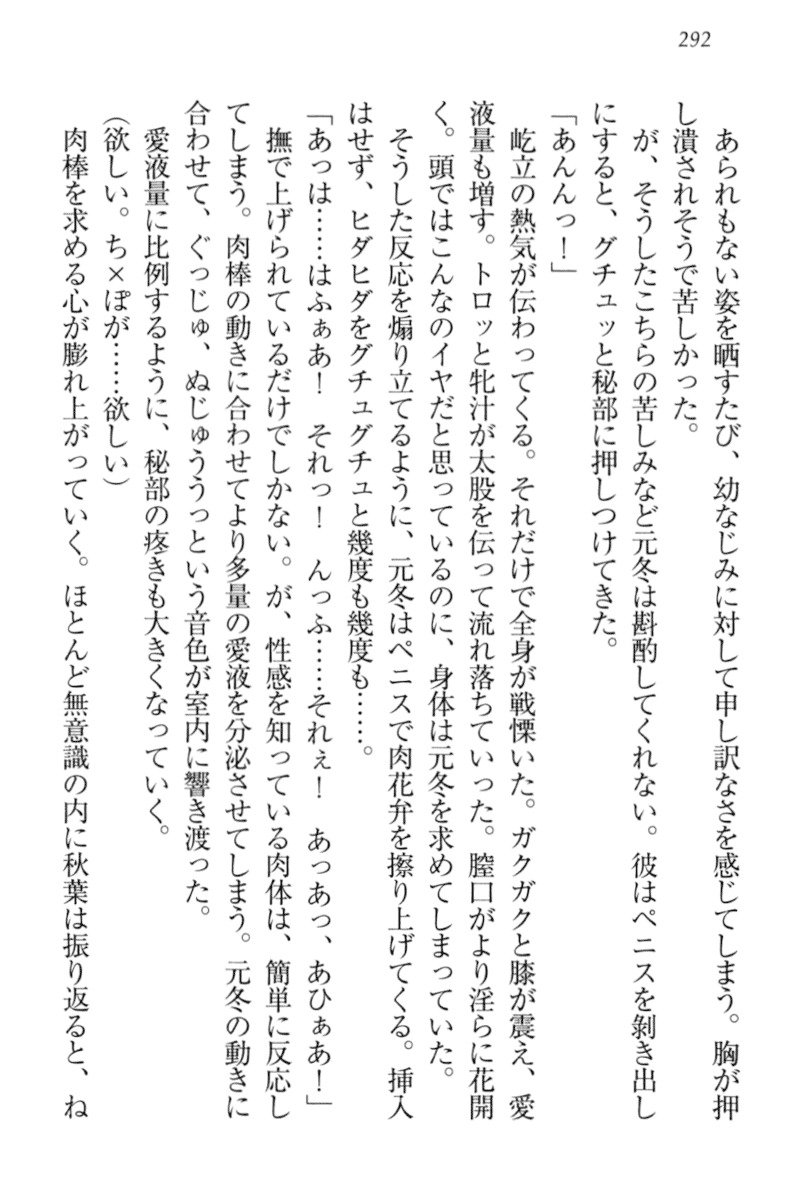 292
あられもない姿を晒すたび、幼なじみに対して申し訳なさを感じてしまう。胸が押
し潰されそうで苦しかった。
が、そうしたこちらの苦しみなど元冬は斟酌してくれない。彼はペニスを剥き出し
にすると、グチュッと秘部に押しつけてきた。
「あんんっ！」
屹立の熱気が伝わってくる。それだけで全身が戦慄いた。ガクガクと膝が震え、愛
液量も増す。トロッと牝汁が太股を伝って流れ落ちていった。膣口がより淫らに花開
く。頭ではこんなのイヤだと思っているのに、身体は元冬を求めてしまっていた。
そうした反応を煽り立てるように、元冬はペニスで肉花弁を擦り上げてくる。挿入
はせず、ヒダヒダをグチュグチュと幾度も幾度も……。
「あっは……はふぁあ！　それっ！　んっふ……それぇ！　あっあっ、あひぁあ！」
撫で上げられているだけでしかない。が、性感を知っている肉体は、簡単に反応し
てしまう。肉棒の動きに合わせてより多量の愛液を分泌させてしまう。元冬の動きに
合わせて、ぐっじゅ、ぬじゅううっという音色が室内に響き渡った。
愛液量に比例するように、秘部の疼きも大きくなっていく。
（欲しい。ち×ぽが……欲しい）
肉棒を求める心が膨れ上がっていく。ほとんど無意識の内に秋葉は振り返ると、ね